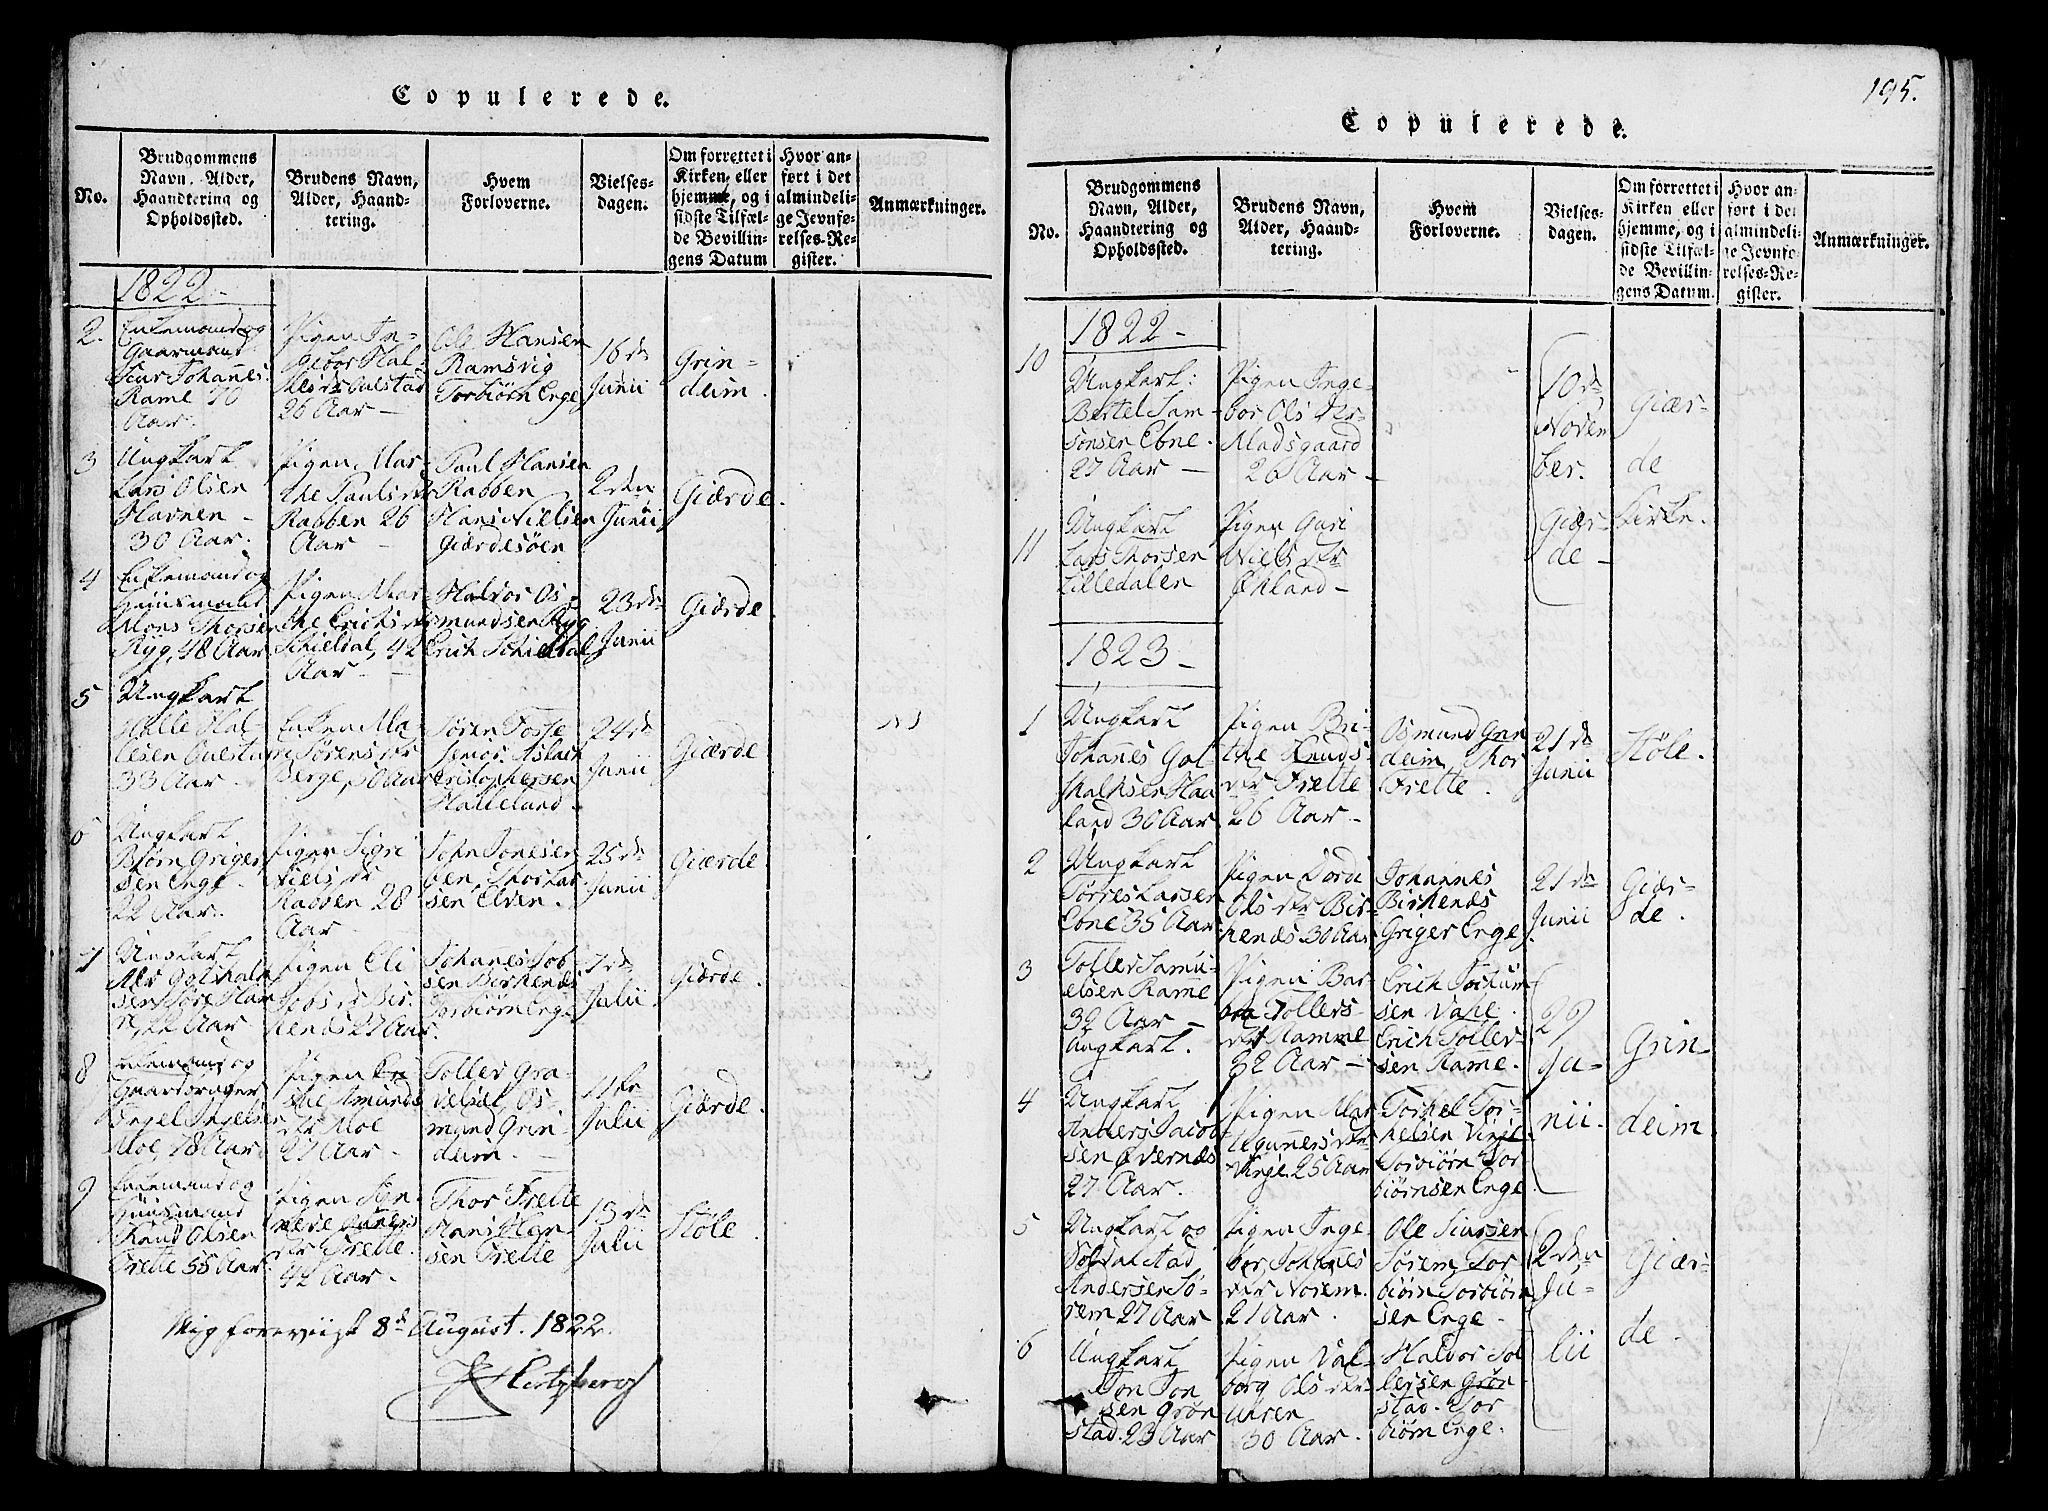 Copulerede.
No.
Brudgommens
Navn, Alder,
Haandtering og
Opholdssted.
Brudens Navn,
Alder, Haand-
tering.
Hvem
Forloverne.
Vielses-
dagen.
Om forrettet i
Kirken, eller
hjemme, og i
sidste Tilfæl-
de Bevillin-
gens Datum
Hvor an-
ført i det
almindeli-
ge Jevnfø-
relses-Re-
gister.
Anmærkninger.
1822 -
2.
Enkemand og
Gaarmand
Siur Johannes.
Rame 70
Aar.
Pigen In-
gebor Hal-
26 Aar -
Ole Hansen
Ramsvig
Torbiörn Enge
16de
Junii
Grin-
deim.
3
Ungkarl
Lars Olsen
Havnen -
30 Aar.
Pigen Mar-
the Paulsdr
Rabben 26
Aar -
Paul Hansen
Rabben
Hans Nielsen
Giærdesöen
2den
Junii
Giærde.
4
Enkemand og
Huusmand
Mons Thorsen
Ryg, 48 Aar
Pigen Mar-
the Erichsdr
Schieldal, 42
Aar -
Halvor Os-
mundsen Ryg
Erich Schieldal
23de
Junii
Giærde.
5
Ungkarl
Helle Hal-
lesen
33 Aar -
Enken Ma-
ri Sörensdr
Berge, 50 Aar
Sören Fosse
senior. Aslach
Cristophersen
Halleland -
24de
Junii
Giærde
6
Ungkarl
Biörn Griger
sen Enge.
22 Aar.
Pigen Sigri
Nielsdr
Rabben 28
Aar -
John Jonesen
ben Thorkar
sen Elven.
25de
Junii
Giærde
7
Ungkarl
Golskalk
sen Store Ham
re, 22 Aar
Pigen Eli
Jobsdr Bir-
kenes 27 Aar.
Johannes Job-
sen Birkenes
Torbiörn Enge
7de
Julii
Giærde.
8
Enkemand og
Gaardbruger
Engel Ingelsen
Moe, 78 Aar
Pigen
Amunds
dr Moe
27 Aar -
Toller Gra-
Os-
mund Grin-
deim. -
11te
Julii
Giærde.
9
Enkemand og
Huusmand
Knud Olsen
Frette 55 Aar
Pigen Syn-
neve Gunners
dr Frette.
42 Aar -
Thor Frette
Hans Han-
sen Frette
13de
Julii
Stöle.
Mig foreviist 8de August. 1822.
Hertzberg
195.
Copulerede.
No.
Brudgommens
Navn, Alder,
Haandtering og
Opholdssted.
Brudens Navn,
Alder, Haand-
tering.
Hvem
Forloverne.
Vielses-
dagen.
Om forrettet i
Kirken eller
hjemme, og i
sidste Tilfæl-
de Bevillin-
gens Datum.
Hvor an-
ført i det
almindeli-
ge Jevnfø-
relses-Re-
gister.
Anmærkninger.
1822 -
10
Ungkarl:
Bertel Sam-
sönsen Ebne.
27 Aar -
Pigen Inge-
bor Olsdtr
Madsgaard
26 Aar -
10de
Novem
ber.
Giær-
de
Kirke.
11
Ungkarl
Lars Thorsen
Lilledalen
Pigen Guri
Nielsdtr
Ekland -
Giær-
de -
1823 -
1
Ungkarl
Johannes Got-
skalksen Haa
land 30 Aar
Pigen Bri-
the Knuds
dtr Frette
26 Aar -
Osmund Grin
deim, Thor
Frette.
21de
Junii
Stöle.
2
Ungkarl
Törres Larsen
Ebne 35 Aar
Pigen Dordi
Olsdtr Bir-
kenæs 30 Aar
Johannes
Birkenæs
Griger Enge
21de
Junii
Giær-
de.
3
Toller Samu-
elsen Rame
32 Aar -
Ungkarl.
Pigen Bar-
bra Tollers-
dtr Ramme
32 Aar -
Erich
sen Vahe.
Erich Toller-
sen Rame.
29
Ju-
nii.
Grin-
deim.
4
Ungkarl
Anders Jacob
sen Övernæs
27 Aar.
Pigen Mar
Gunnersdtr
Vinje 25 Aar
Torkel Tor-
kelsen Vinje
Torbiörn Tor-
biörnsen Enge
5
Ungkarl og
Soldat
Andersen Sö-
rem 27 Aar
Pigen Inge-
bor Johannes
dtr Norem.
21 Aar.
Ole Siursen
Sörem, Tor-
biörn Torbiörn
sen Enge -
2den
Ju-
lii
Giær-
de.
6
Ungkarl
Jon Jon
sen Grön
stad. 23 Aar
Pigen Val-
borg Olsdtr
30 Aar.
Halvor Tol
lersen Grön-
stad. Tor
biörn Enge.